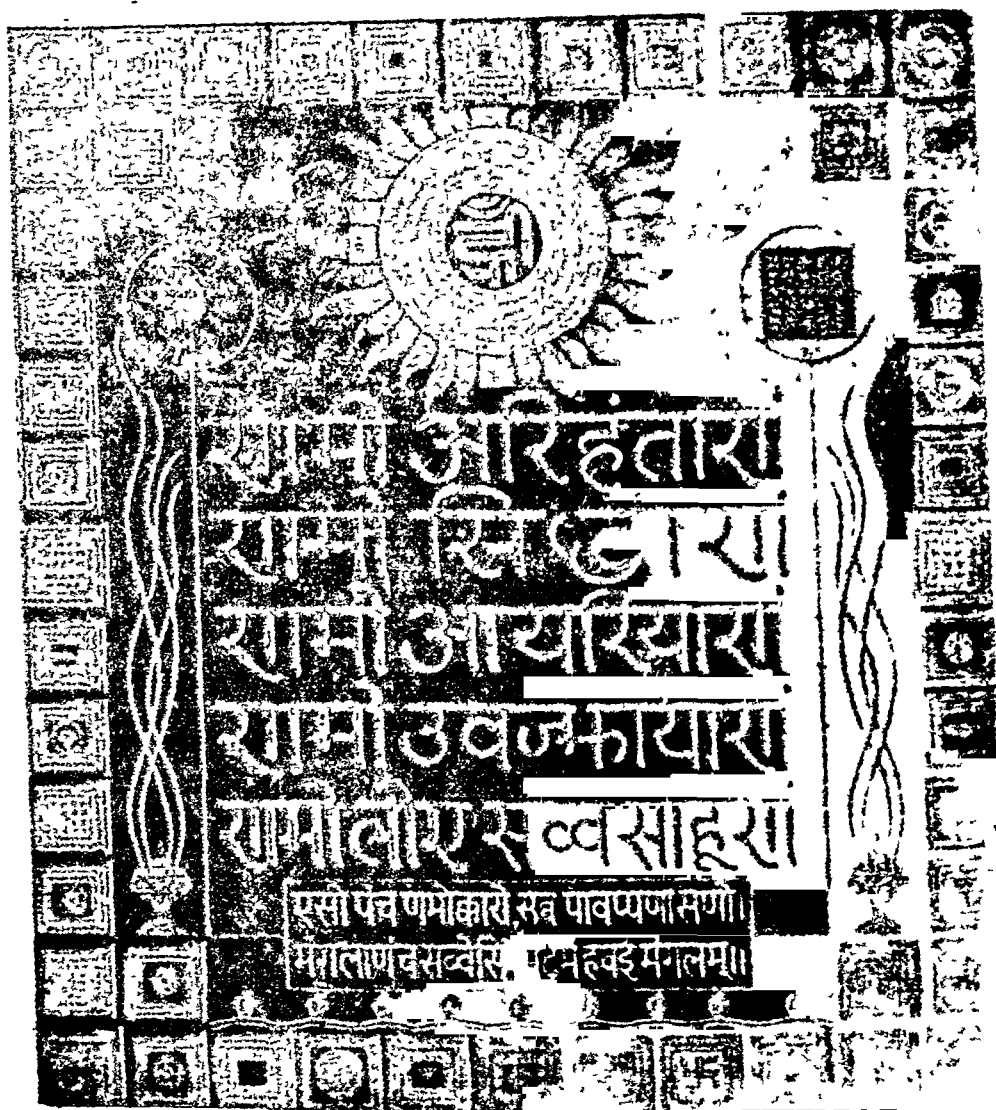 णमो अरिहंताणं
णमो सिद्धाणं
णमो आयरियाणं
णमो उवज्झायाणं
णमो लोए सव्वसाहूणं
एसो पंच णमोक्कारो, सव्व पावप्पणासणो।
मंगलाणं च सव्वेसिं, पढमं हवइ मंगलम्॥